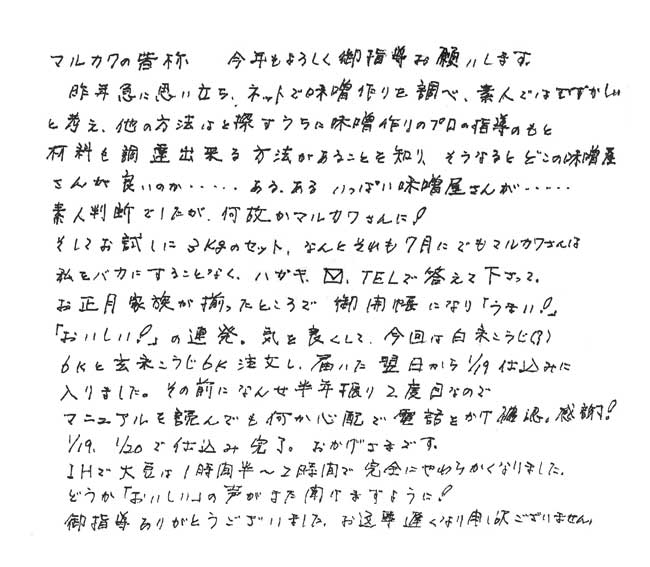 マルカワの皆称　今年もよろしく御指導お願いします
昨年急に思い立ち、ネットで味噌作りを調べ、素人ではむずかしい
と考え、他の方法はと探すうちに味噌作りのプロの指導のもと
材料も調達出来る方法があることを知り、そうなるとどこの味噌屋
さんが良いのか・・・・・ある、ある いっぱい味噌屋さんが・・・・・
素人判断でしたが、何故かマルカワさんに!
そしてお試しに3Kgのセット、なんとそれも7月にでもマルカワさんは
私をバカにすることなく、ハガキ、✉、TELで答えて下さって。
お正月家族が揃ったところで 御開帳になり「うまい!」
「おいしい!」の連発。気を良くして、今回は白米こうじ(?)
6Kと玄米こうじ6K注文し、届いた翌日から1/19仕込みに
入りました。その前になんせ半年振り2度目なので
マニュアルを読んでも何か心配で電話をかけ確認。感謝!
1/19、1/20で仕込み完了。おかげさまです。
IHで大豆は1時間半〜2時間で完全にやわらかくなりました。
どうか「おいしい」の声がまた聞けますように!
御指導ありがとうございました。お返事遅くなり申し訳ございません。